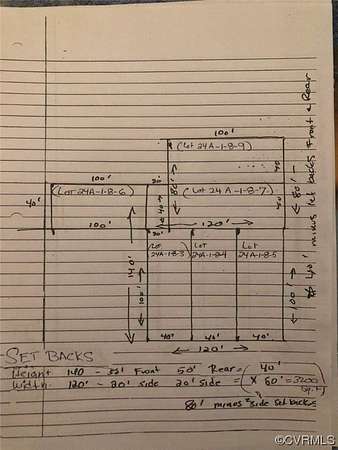 100'
(Lot 24A-1-8-9)
minus set backs Front & Rear
100'
20'
80'
40
80'
(Lot 24A-1-8-6)
(Lot 24A-1-8-7)
40'
40
100'
120'
20'
140'
100'
Lot
24A-1-8-3
Lot
24A-1-8-4
Lot
24A-1-8-5
100'
40'
40'
40'
40'
120'
SET BACKS
Height 140 - Front 50' Rear = 40'
Width 120' - 20' side 20' side = X 80' = 3200
sq.ft
80' minus side set backs
©CVRMLS